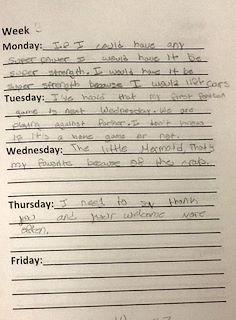 Week 3
Monday: If I could have any
super power I would have it be
super strength. I would have it be
super strength because I would lift cars
Tuesday: I've heard that my first
game is next Wednesday. We are
playing against Parker. I don't know
is it's a home game or not.
Wednesday: The little Mermaid, that's
my favorite because of the crab.
Thursday: I need to say thank
you and your welcome more
often.
Friday: